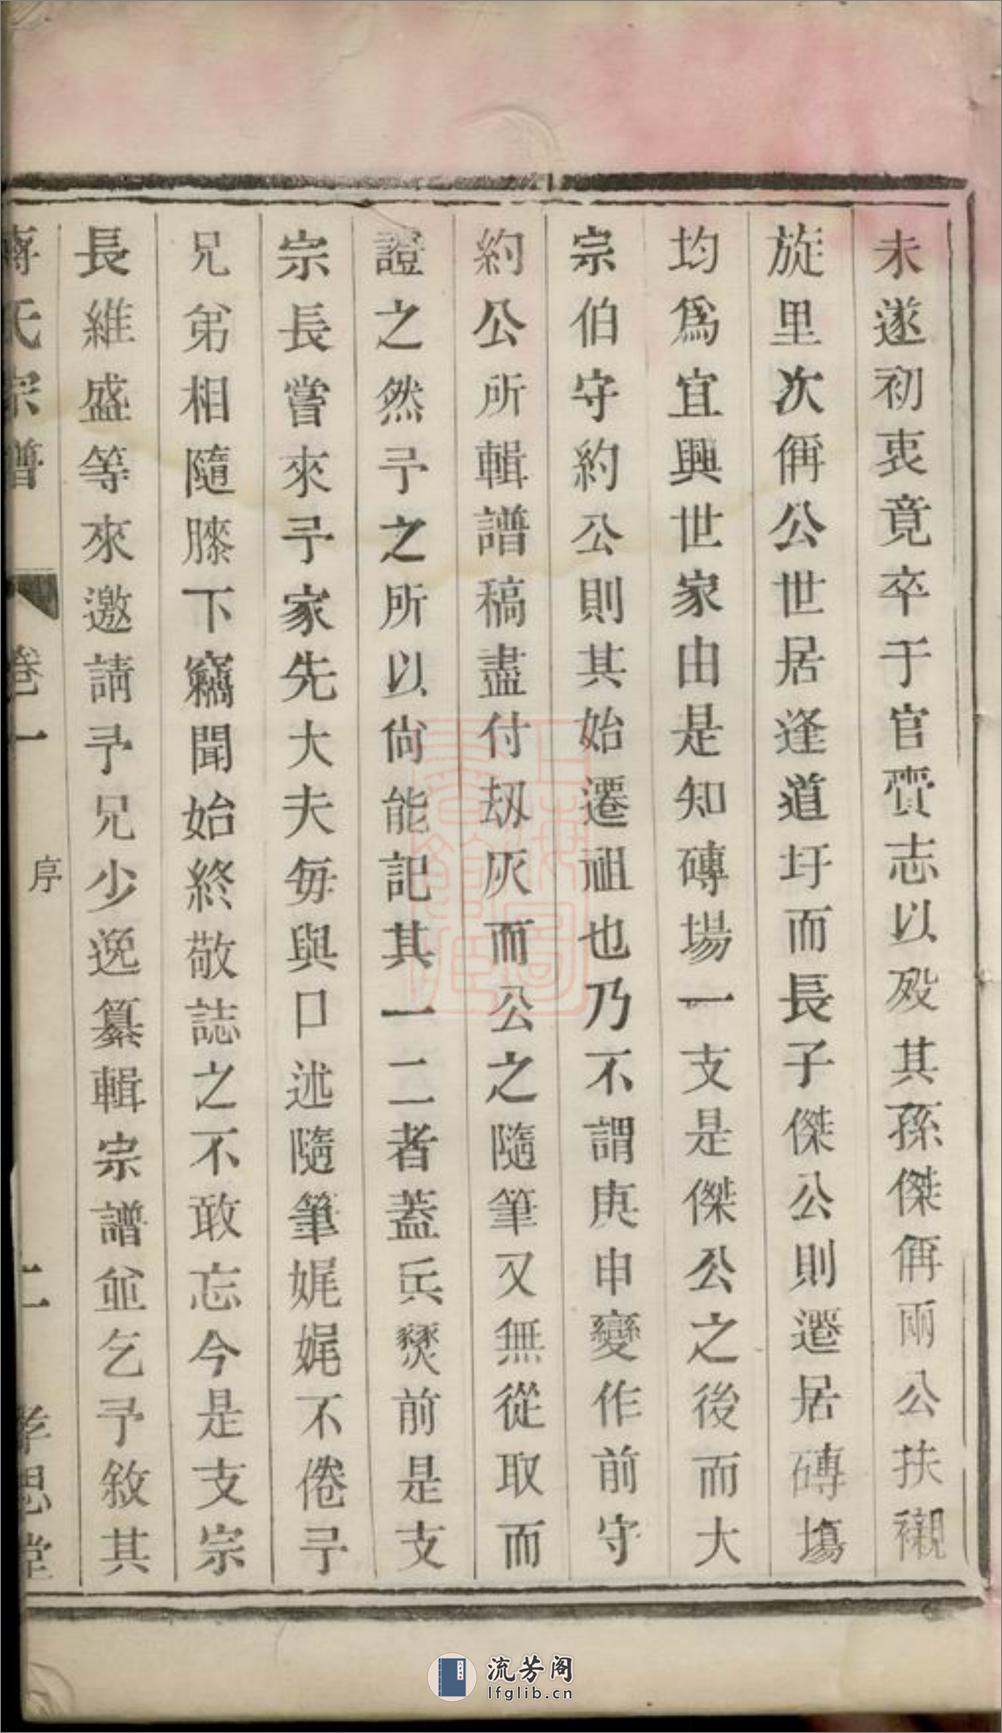 未遂初衷竟卒于官賫志以歿其孫傑偁兩公扶襯
旋里次偁公世居逢道圩而長子傑公則遷居磚塲
均爲宜興世家由是知磚塲一支是傑公之後而大
宗伯守約公則其始遷祖也乃不謂庚申變作前守
約公所輯譜稿盡付刼灰而公之隨筆又無從取而
證之然予之所以尙能記其一二者蓋兵燹前是支
宗長嘗來予家先大夫每與口述隨筆娓娓不倦予
兄弟相隨膝下竊聞始終敬誌之不敢忘今是支宗
長維盛等來邀請予兄少逸纂輯宗譜並乞予敘其
蔣氏宗譜 卷一 序 二 孝思堂
流芳阁
lfglib.cn